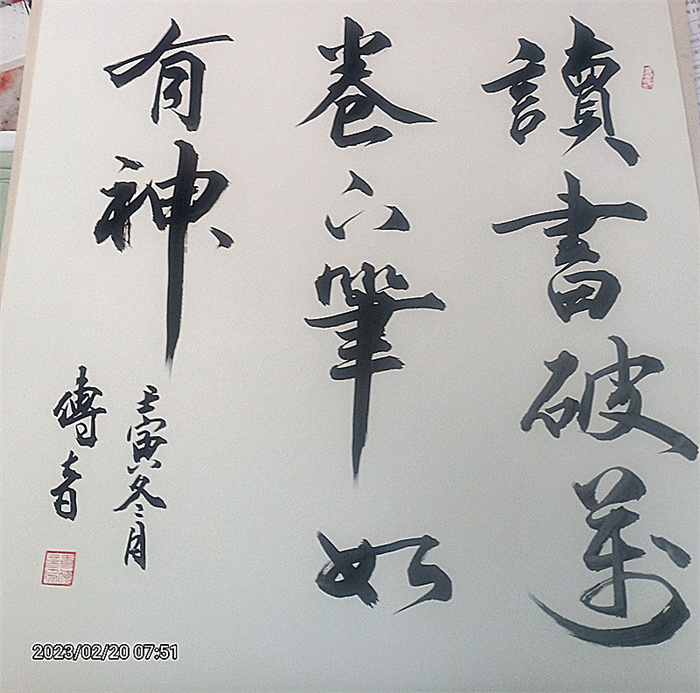 讀書破萬
卷下筆如
有神
壬寅冬月
2023/02/20 07:51